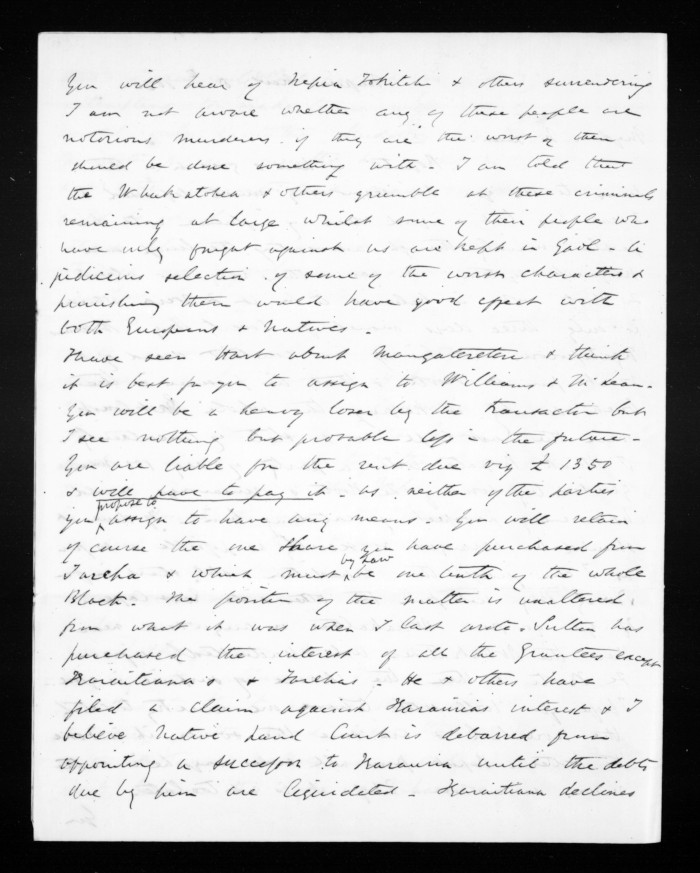 You will hear of Nepia Tokitahi & others surrendering
I am not aware whether any of these people are
notorious murderers. if they are the worst of them
should be done something with - I am told that
the Whakatohea & others grumble at these criminals
remaining at large, whilst some of their people who
have only fought against us are kept in Gaol - A
judicious selection of some of the worst characters &
punishing them would have good effect with
both Europeans & Natives -
I have seen Hart about Mangateretere & think
it is best for you to assign to Williams & McLean -
You will be a heavy loser by the transaction but
I see nothing but probable loss in the future -
You are liable for the rent due viz £1350
& will have to pay it - as neither of the parties
you propose to assign to have any means - You will retain
of course the one share you have purchased from
Tareha & which must by Law be one tenth of the whole
Block - The position of the matter is unaltered
from what it was when I last wrote - Sutton has
purchased the interest of all the Grantees except
Karaitiana's & Tareha's - He & others have
filed a claim against Karauria's interest & I
believe Native Land Court is debarred from
appointing a successor to Karauria until the debts
due by him are liquidated - Karaitiana declines